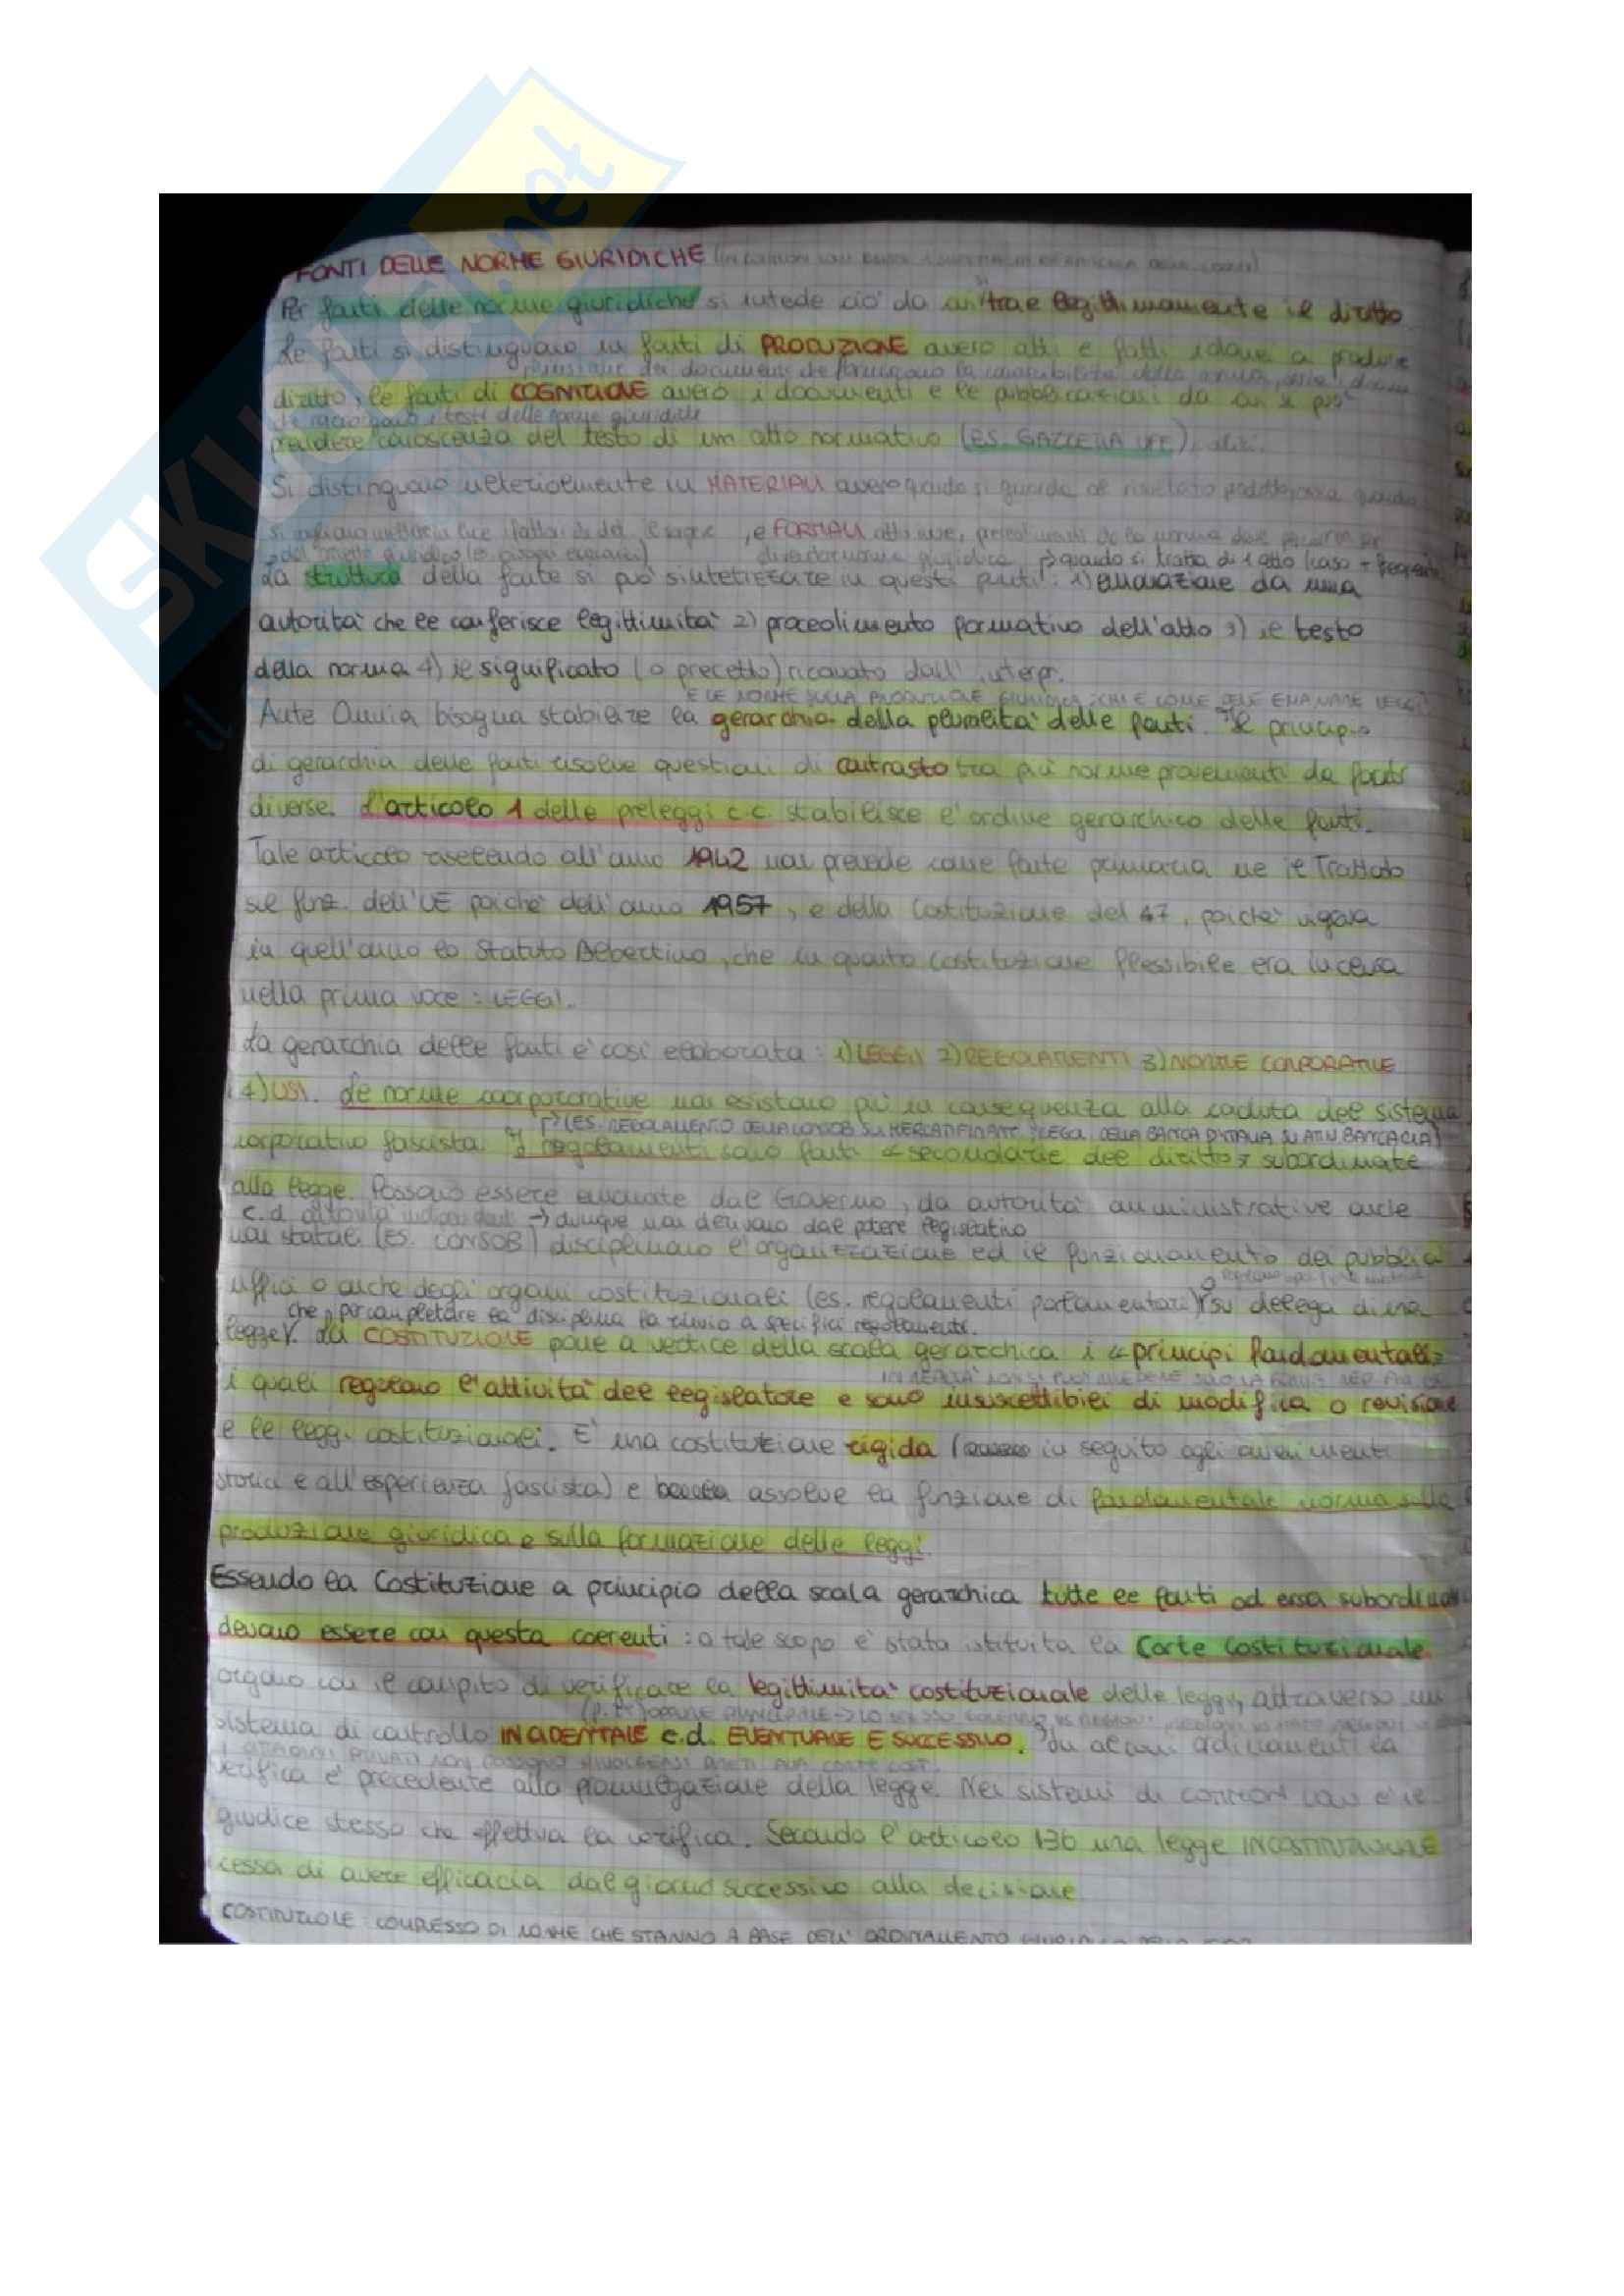 SKUOLA.net
FONTI DELLE NORME GIURIDICHE
Per fonti delle norme giuridiche si intede ciò da cui trae legittimamente il diritto
Le fonti si distinguono in fonti di PRODUZIONE ovvero atti e fatti idonei a produrre
diritto, le fonti di COGNIZIONE ovvero i documenti e le pubblicazioni da cui si può
che racolgono i testi delle norme giuridiche
prendere conoscenza del testo di um atto normativo (es. GAZZETTA UFF)
Si distinguono ulteriolmente in MATERIALI ovvero quando si guarda al risultato
, e FORMALI
quando si tratta di 1 atto (caso + frequente
La struttura della fonte si può sintetizzare in questi punti: 1) emanazione da una
autorità che le conferisce legittimità 2) procedimento formativo dell'atto 3) il testo
della norma 4) il significato (o precetto) ricavato dall'interpr.
E LE NORME SULLA PRODUZIONE GIURIDICA: CHI E COME DEVE EMANARE LEGGI
Ante Omnia bisogna stabilire la gerarchia della pluralità delle fonti. Il principio
di gerarchia delle fonti risolve questioni di contrasto tra più norme provenienti da fonti
diverse. L'articolo 1 delle preleggi c.c. stabilisce l'ordine gerarchico delle fonti.
Tale articolo risalendo all'anno 1942 non prevede come fonte primaria ne il Trattato
sul funz. dell'UE poichè dell'anno 1957, e della Costituzione del 47, poichè vigeva
in quell'anno lo Statuto Albertino, che in quanto costituzione flessibile era inclusa
nella prima voce: LEGGI.
La gerarchia delle fonti è così elaborata: 1) LEGGI 2) REGOLAMENTI 3) NORME CORPORATIVE
4) USI. Le norme coorporative non esistono più in conseguenza alla caduta del sistema
(ES. REGOLAMENTO DELLA CONSOB SU MERCATI FINANZ. DELLA BANCA D'ITALIA SU ATTIV. BANCARIA)
corporativo fascista. I regolamenti sono fonti "secondarie del diritto" subordinate
alla legge. Possono essere emanate dal Governo, da autorità amministrative anche
c.d. autorità indipendenti → dunque non derivano dal potere legislativo
non statali (es. CONSOB) disciplinano l'organizzazione ed il funzionamento dei pubblici
uffici o anche degli organi costituzionali (es. regolamenti parlamentari) o su delega di una
che, per completare la disciplina fa rinvio a specifici regolamenti.
legge. La COSTITUZIONE pone a vertice della scala gerarchica i "principi fondamentali"
i quali regolano l'attività del legislatore e sono insuscettibili di modifica o revisione
e le leggi costituzionali. E' una costituzione rigida (in seguito agli avvenimenti
storici e all'esperienza fascista) e assolve la funzione di fondamentale norma sulla
produzione giuridica e sulla formazione delle leggi.
Essendo la Costituzione a principio della scala gerarchica tutte le fonti ad essa subordinate
devono essere con questa coerenti: a tale scopo è stata istituita la Corte Costituzionale
organo con il compito di verificare la legittimità costituzionale delle leggi, attraverso un
sistema di controllo INCIDENTALE c.d. EVENTUALE E SUCCESSIVO. In alcuni ordinamenti la
I CITTADINI PRIVATI NON POSSONO RIVOLGERSI DIRETT. ALLA CORTE COST.
verifica è precedente alla promulgazione della legge. Nei sistemi di common law è il
giudice stesso che effettua la verifica. Secondo l'articolo 136 una legge INCOSTITUZIONALE
cessa di avere efficacia dal giorno successivo alla decisione
COSTITUZIONE: COMPLESSO DI NORME CHE STANNO A BASE DELL'ORDINAMENTO